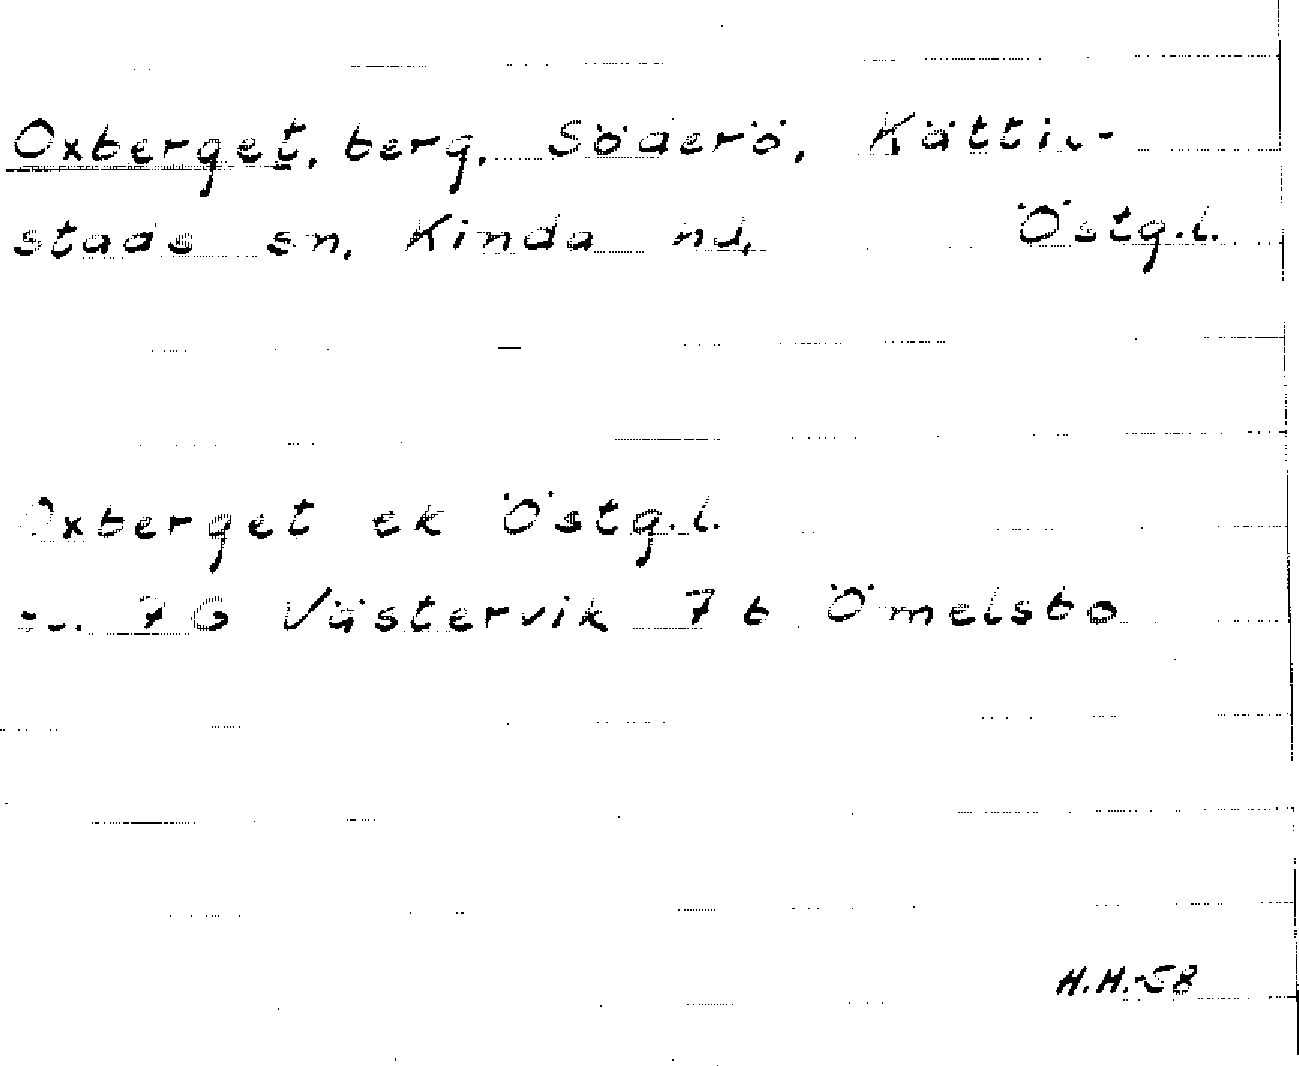 Oxberget, berg, Söderö, Kättil-
stads sn, Kinda hd, Östg.l.
Oxberget ek Östg.l.
7 G Västervik 7 b Ömelsbo
H.H.-58